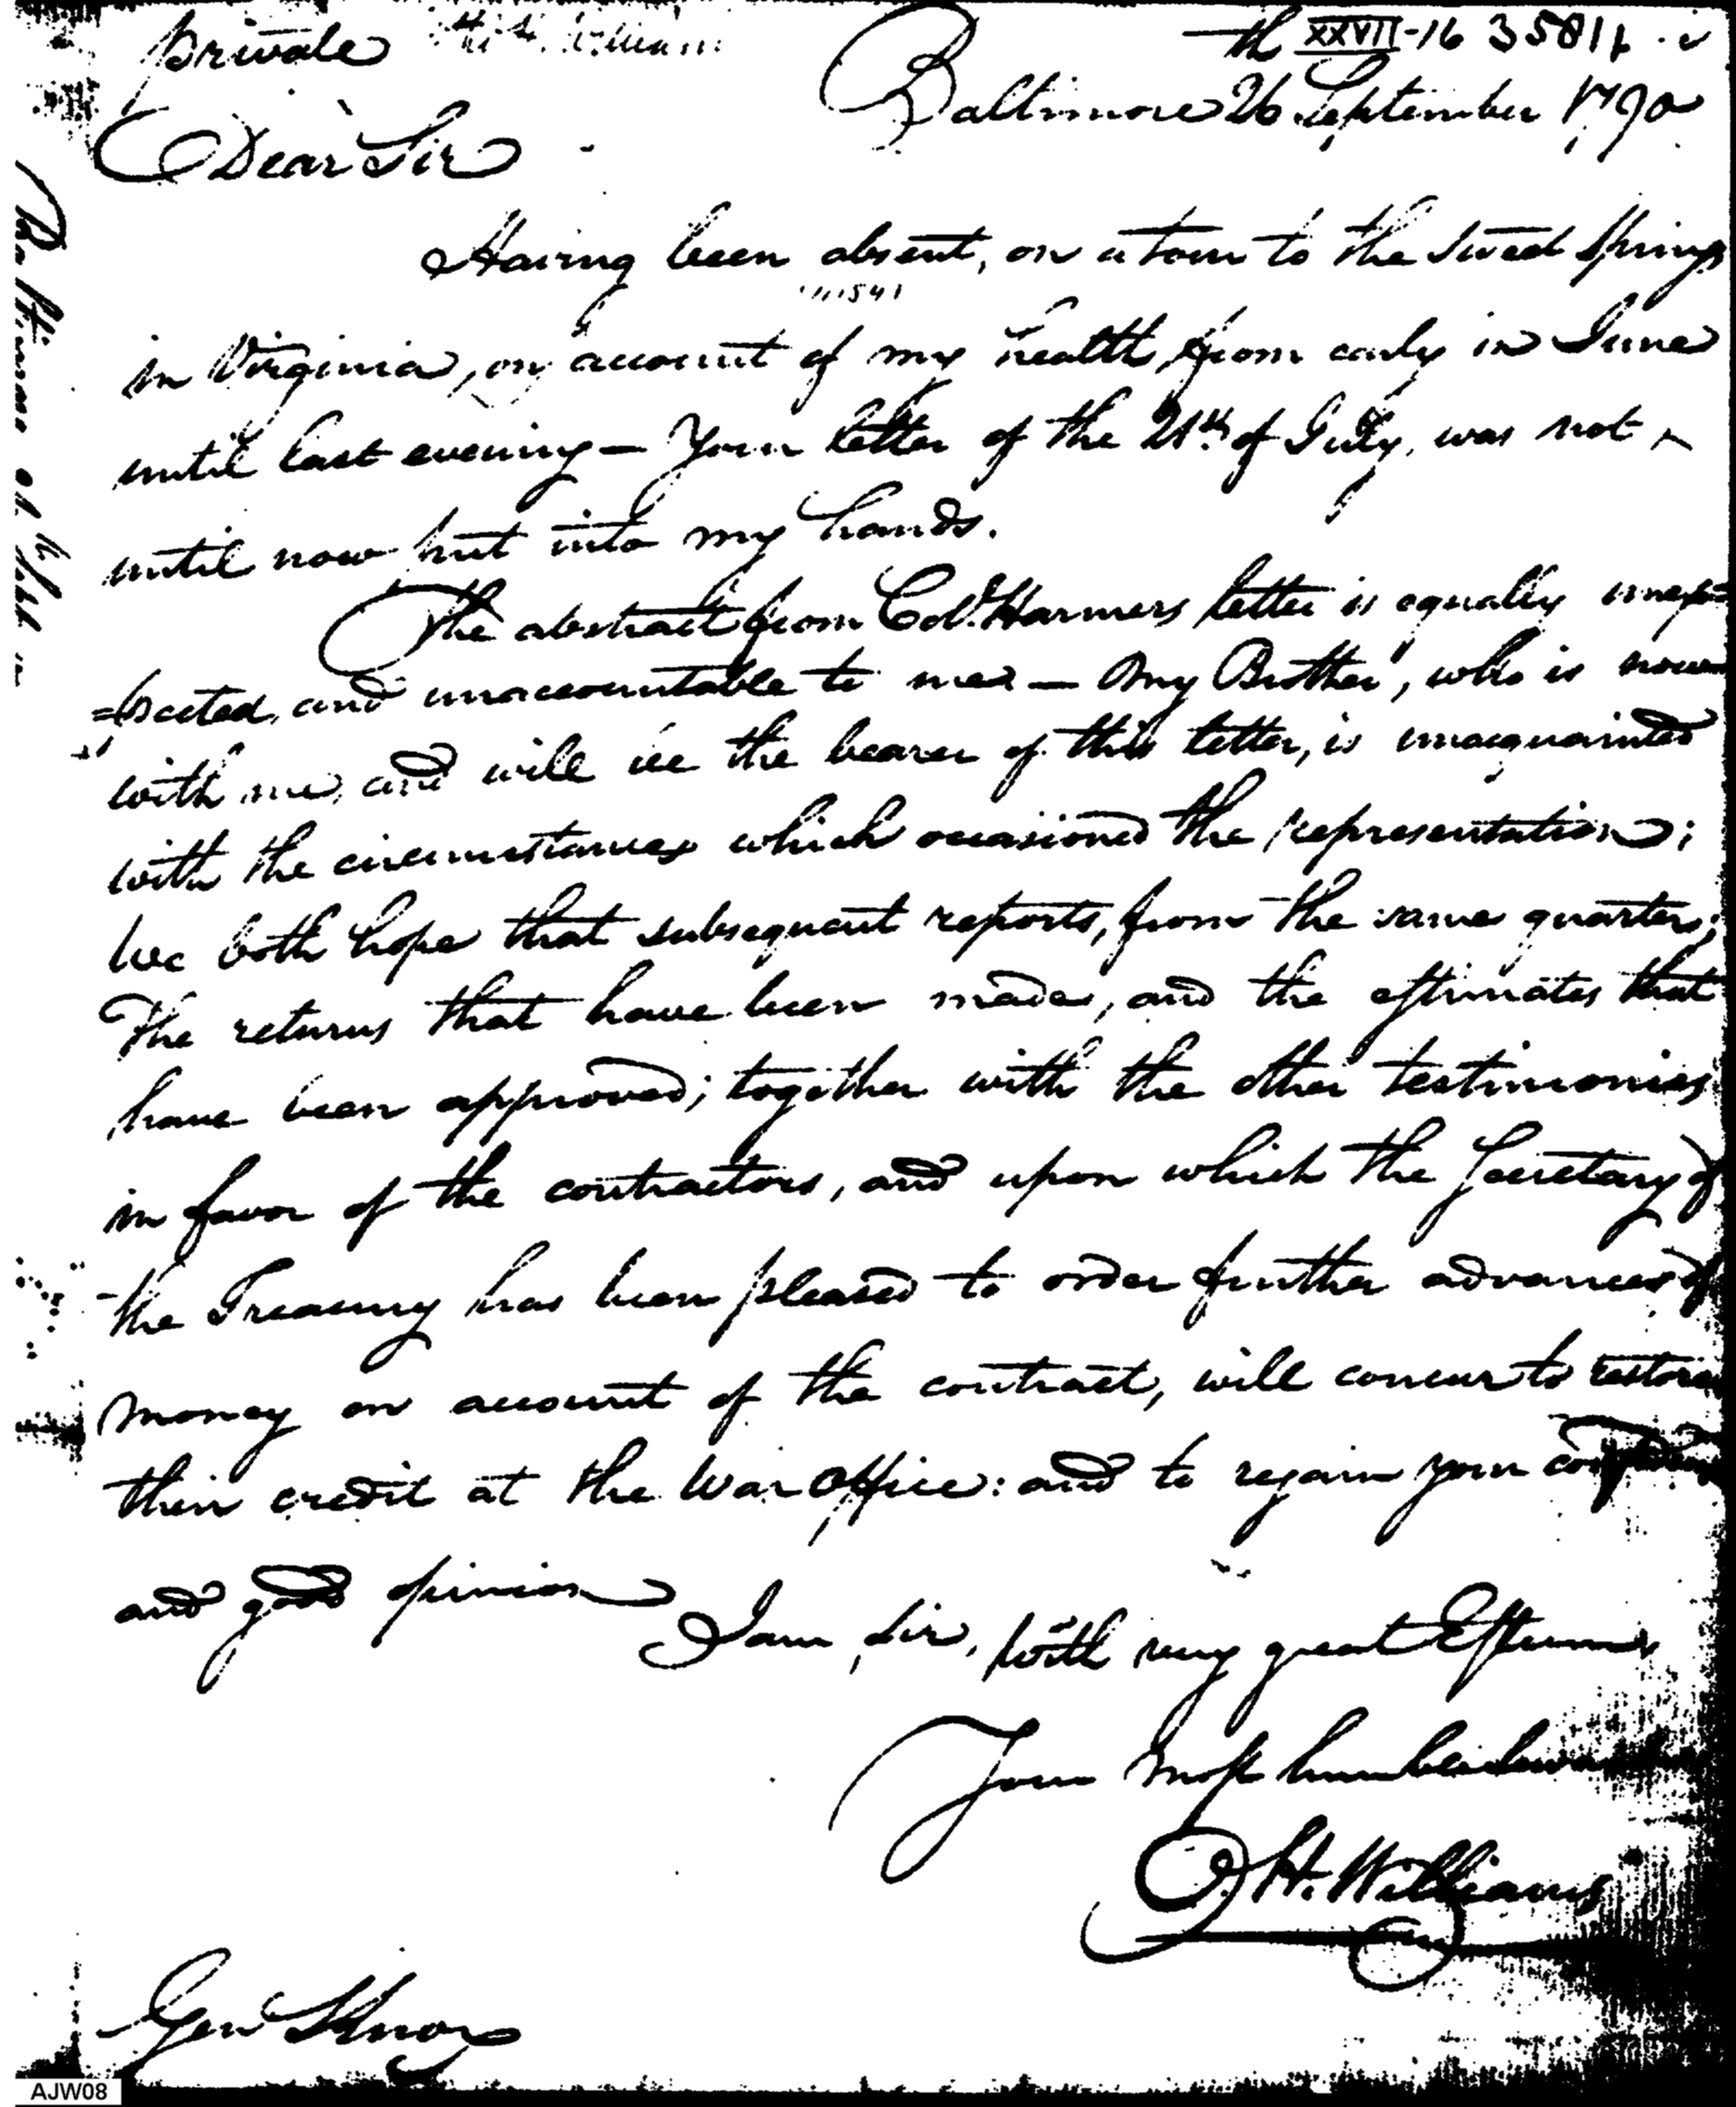 private
XXVII-16
Baltimore 26 September 1790
Dear Sir
Having been absent, on a tour to the Sweet Springs
in Virginia, on account of my health, from early in June
until last evening – Your letter of the 21st. of July, was not
until now put into my hands.
The abstract from Col. Harmers letter is equally unex=
=pected, and unaccountable to me – My Brother, who is now
with me, and will be the bearer of this letter, is unacquainted
with the circumstances which occasioned the representation;
We both hope that subsequent reports, from the same quarter;
The returns that have been made, and the estimates that
have been approved; together with the other testimonies
in favor of the contractors, and upon which the Secretary of
the Treasury has been pleased to order further advances of
money on account of the contract, will concur to restore
their credit at the War Office: and to regain your confidence
and good opinion
I am, Sir, with very great Esteem
Your most humble Servant
O. H. Williams
Genl Knox
AJW08